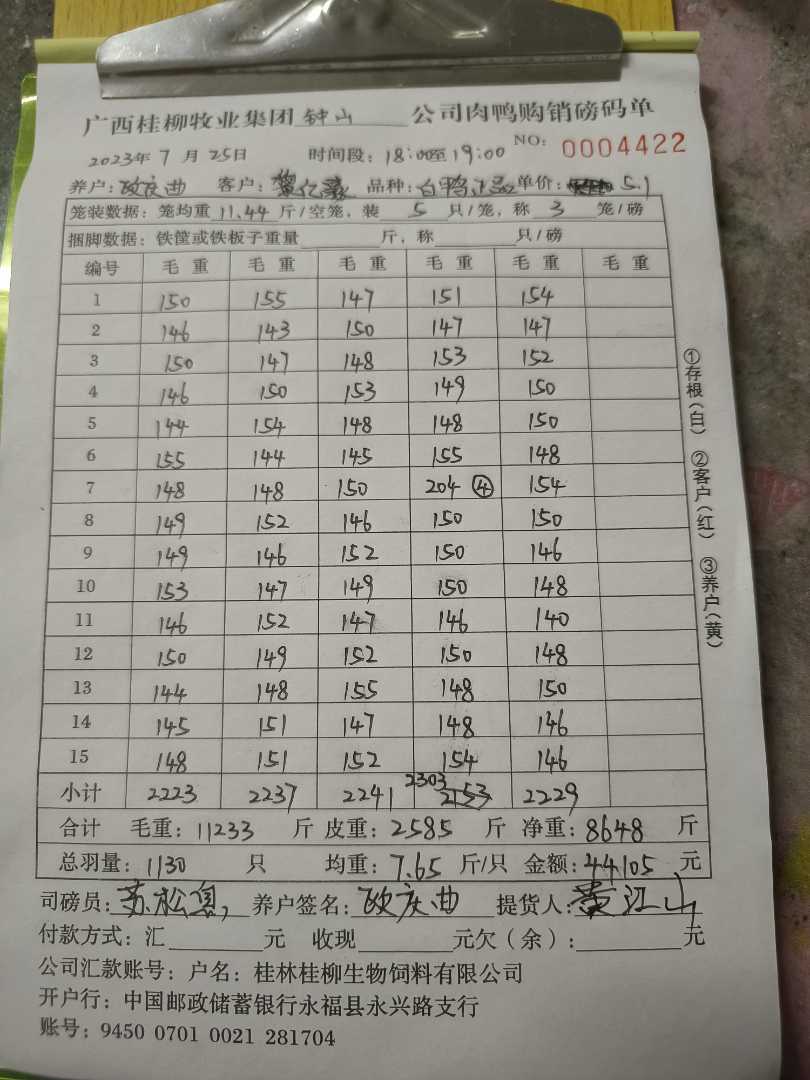 广西桂柳牧业集团钟山公司肉鸭购销磅码单
2023年7月25日 时间段：18:00至19:00 NO: 0004422
养户：欧庆曲 客户：黎亿豪 品种：白鸭正品 单价：5.1
笼装数据：笼均重11.44斤/空笼，装5只/笼，称3笼/磅
捆脚数据：铁筐或铁板子重量 斤，称 只/磅
编号 毛重 毛重 毛重 毛重 毛重 毛重
1 150 155 147 151 154
2 146 143 150 147 147
3 150 147 148 153 152
4 146 150 153 149 150
5 144 154 148 148 150
6 155 144 145 155 148
7 148 148 150 204 ④ 154
8 149 152 146 150 150
9 149 146 152 150 146
10 153 147 149 150 148
11 146 152 147 146 140
12 150 149 152 150 148
13 144 148 155 148 150
14 145 151 147 148 146
15 148 151 152 154 146
小计 2223 2237 2241 2303 2153 2229
合计 毛重：11233斤 皮重：2585斤 净重：8648斤
总羽量：1130只 均重：7.65斤/只 金额：44105元
司磅员：苏松 养户签名：欧庆曲 提货人：黄江山
付款方式：汇 元 收现 元欠（余）： 元
公司汇款账号：户名：桂林桂柳生物饲料有限公司
开户行：中国邮政储蓄银行永福县永兴路支行
账号：9450 0701 0021 281704
①存根（白） ②客户（红） ③养户（黄）